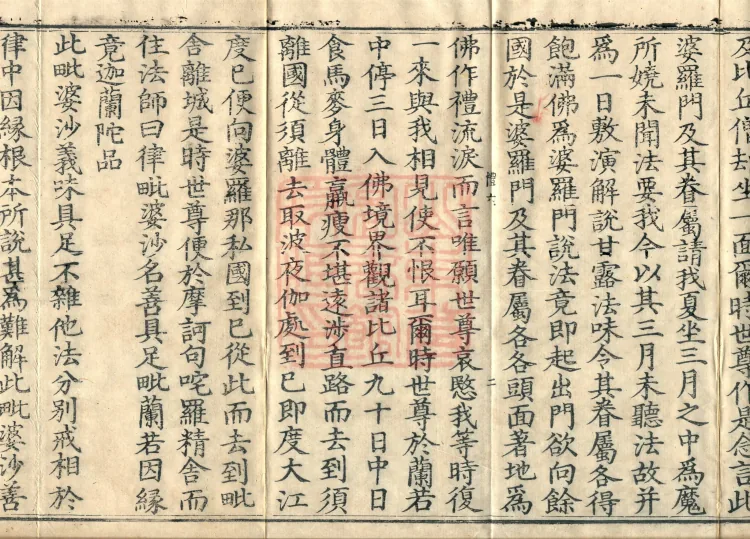 及比丘僧去坐一面爾時世尊作是念言此
婆羅門及其眷屬請我夏坐三月之中為魔
所嬈未聞法要我今以其三月未聽法故并
為一日敷演解說甘露法味令其眷屬各得
飽滿佛為婆羅門說法竟即起出門欲向餘
國於是婆羅門及其眷屬各各頭面著地為
二
佛作禮流淚而言唯願世尊哀愍我等時復
一來與我相見使不恨耳爾時世尊於蘭若
中停三日入佛境界觀諸比丘九十日中日
食馬麥身體羸瘦不堪遠涉直路而去到須
離國從須離去取波夜伽處到已即度大江
度已便向婆羅那私國到已從此而去到毗
舍離城是時世尊便於摩訶句咤羅精舍而
住法師曰律毗婆沙名善具足毗蘭若因緣
竟迦蘭陀品
此毗婆沙義味具足不雜他法分別戒相於
律中因緣根本所說甚為難解此毗婆沙善